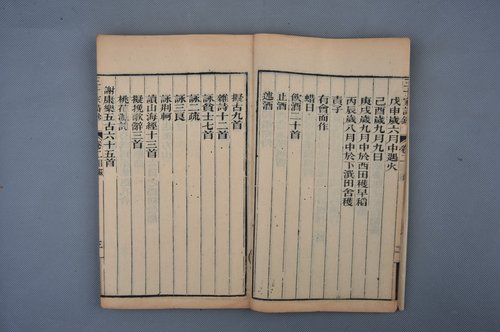 戊申歲六月中遇火
己酉歲九月九日
庚戌歲九月中於西田穫早稻
丙辰歲八月中於下潠田舍穫
責子
有會而作
蜡日
飲酒二十首
止酒
述酒
擬古九首
雜詩十二首
詠貧士七首
詠二疏
詠三良
詠荆軻
讀山海經十三首
擬挽歌辭三首
桃花源詩
謝康樂五古六十五首